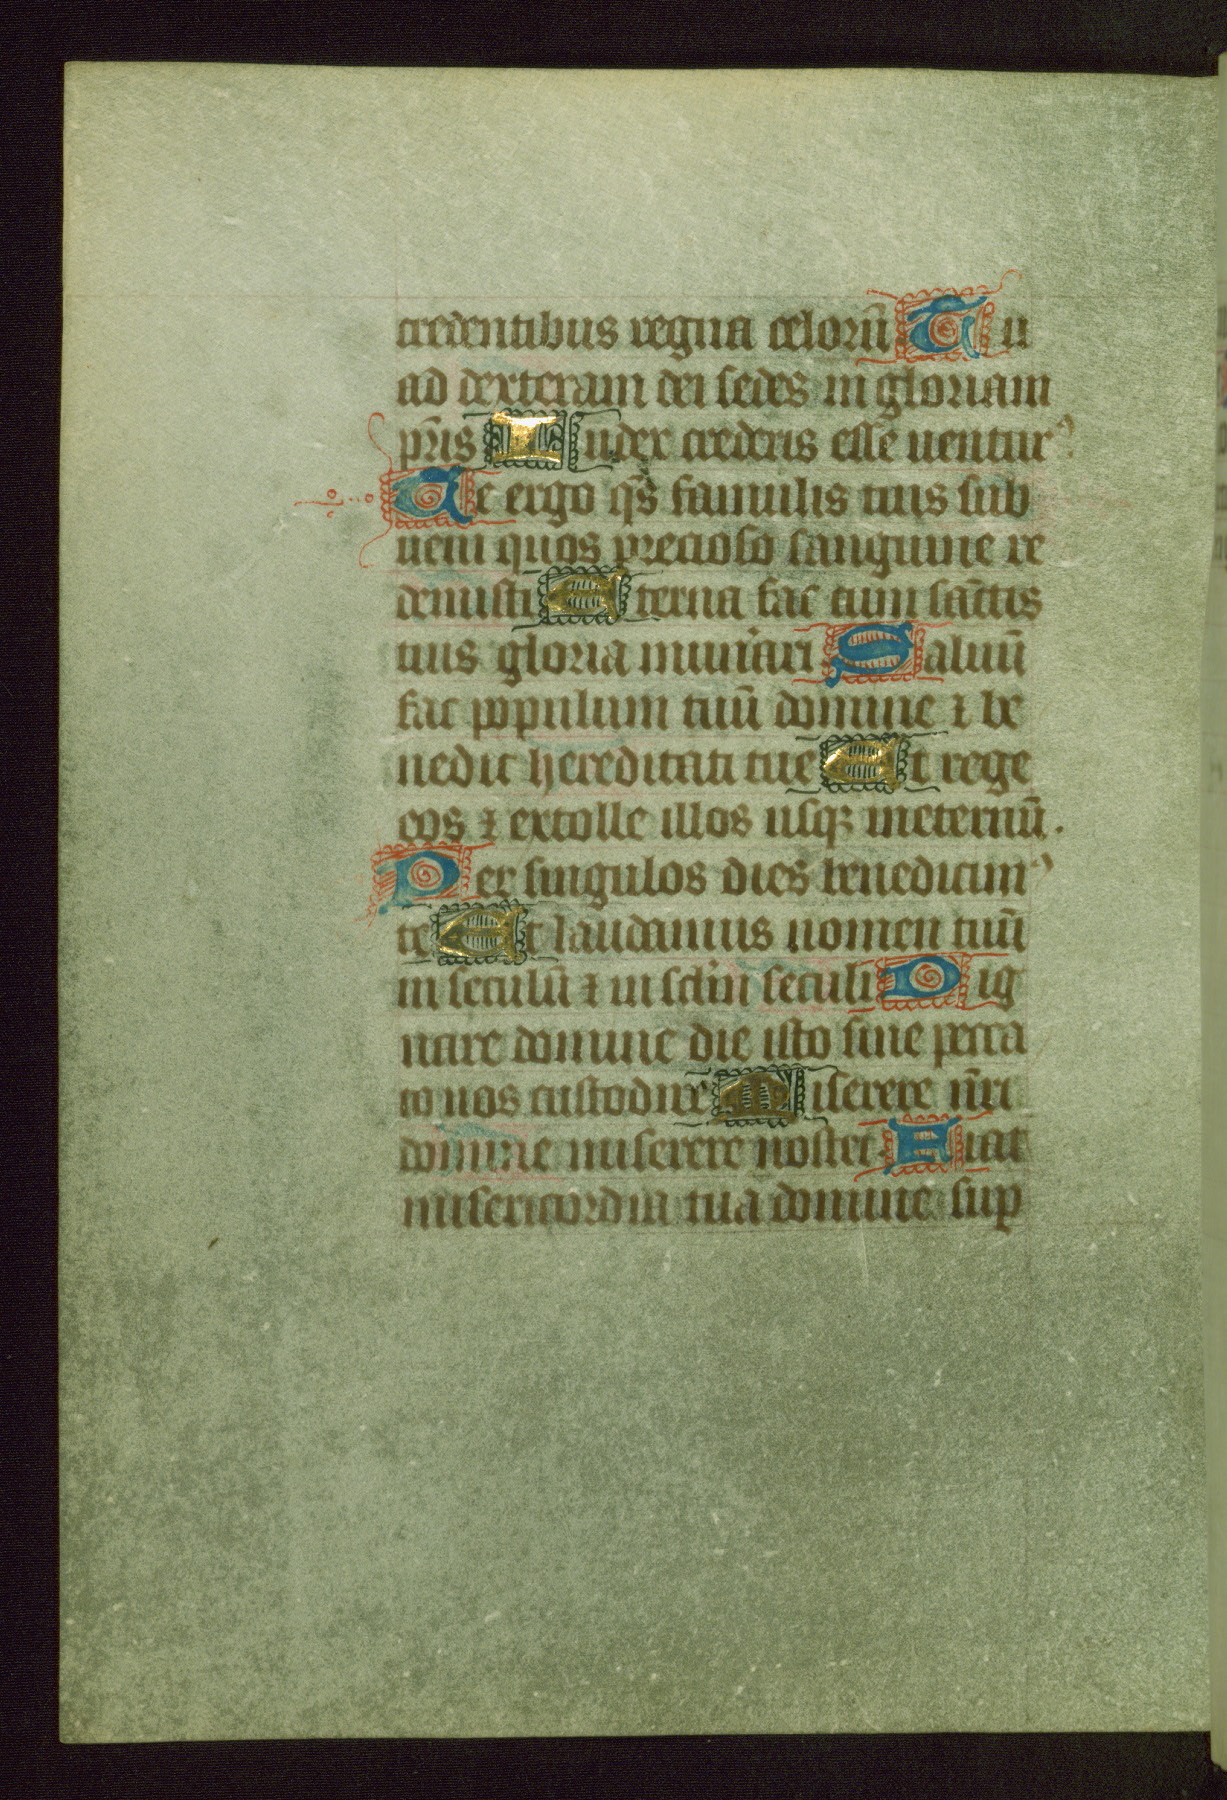 credentibus regna celorū Tu
ad dexteram dei sedes in gloriam
pr̄is Iudex crederis esse ventur᾿
Te ergo q̄s famulis tuis sub
veni quos precioso sanguine re
demisti Eterna fac cum sāctis
tuis gloria munerari Saluū
fac populum tuū domine ⁊ be
nedic hereditati tue Et rege
eos ⁊ extolle illos usqꝫ ineternū.
Per singulos dies benedicim᾿
te Et laudamus nomen tuū
in seculū ⁊ in sclm̄ seculi Dig
nare domine die isto sine pecca
to nos custodire Miserere n̄ri
domine miserere nostri Fiat
misericordia tua domine sup